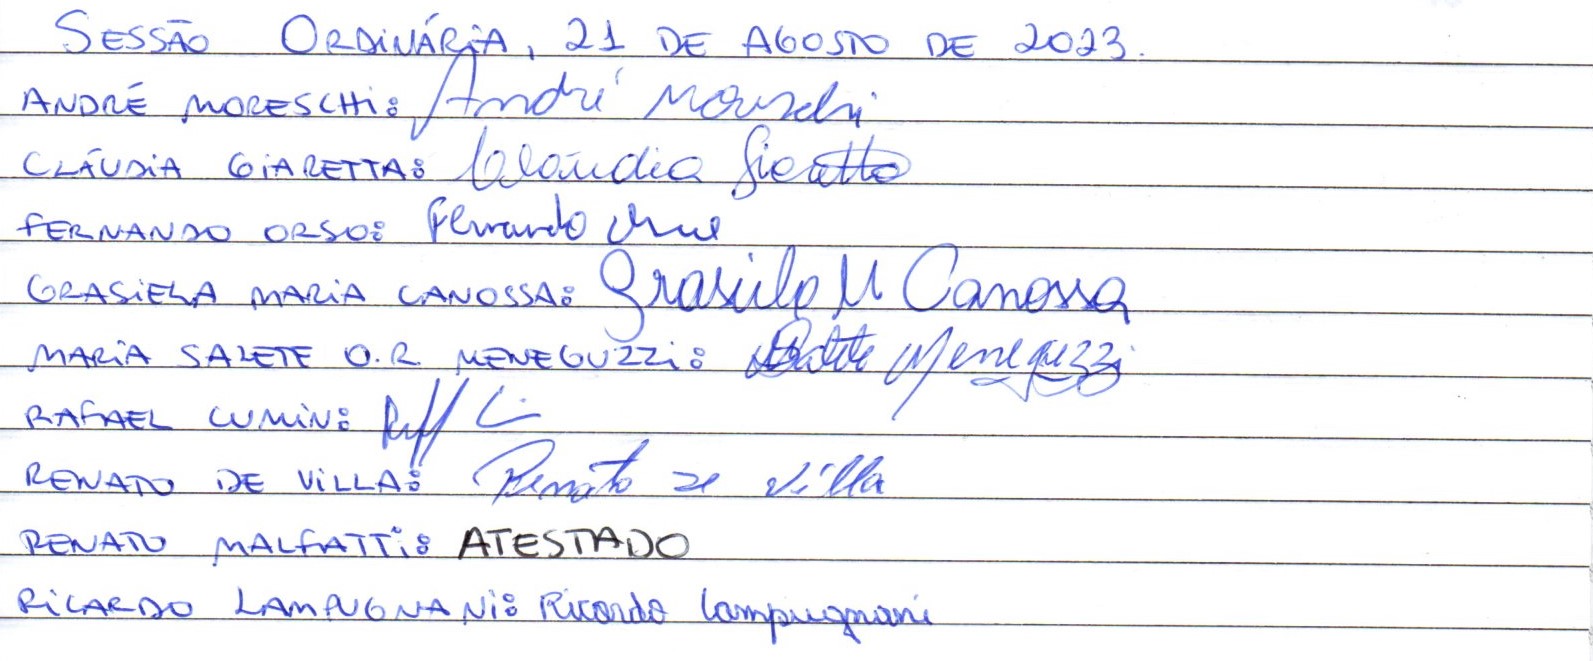 SESSÃO ORDINÁRIA, 21 DE AGOSTO DE 2023.
ANDRÉ MORESCHI: André Moreschi
CLÁUDIA GIARETTA: Cláudia Giaretta
FERNANDO ORSO: Fernando
GRASIELA MARIA CANOSSA: Grasiela M Canossa
MARIA SALETE O.R MENEGUZZI: Salete Meneguzzi
RAFAEL CUMIN:
RENATO DE VILLA: Renato De Villa
RENATO MALFATTI: ATESTADO
RICARDO LAMPUGNANI: Ricardo Lampugnani